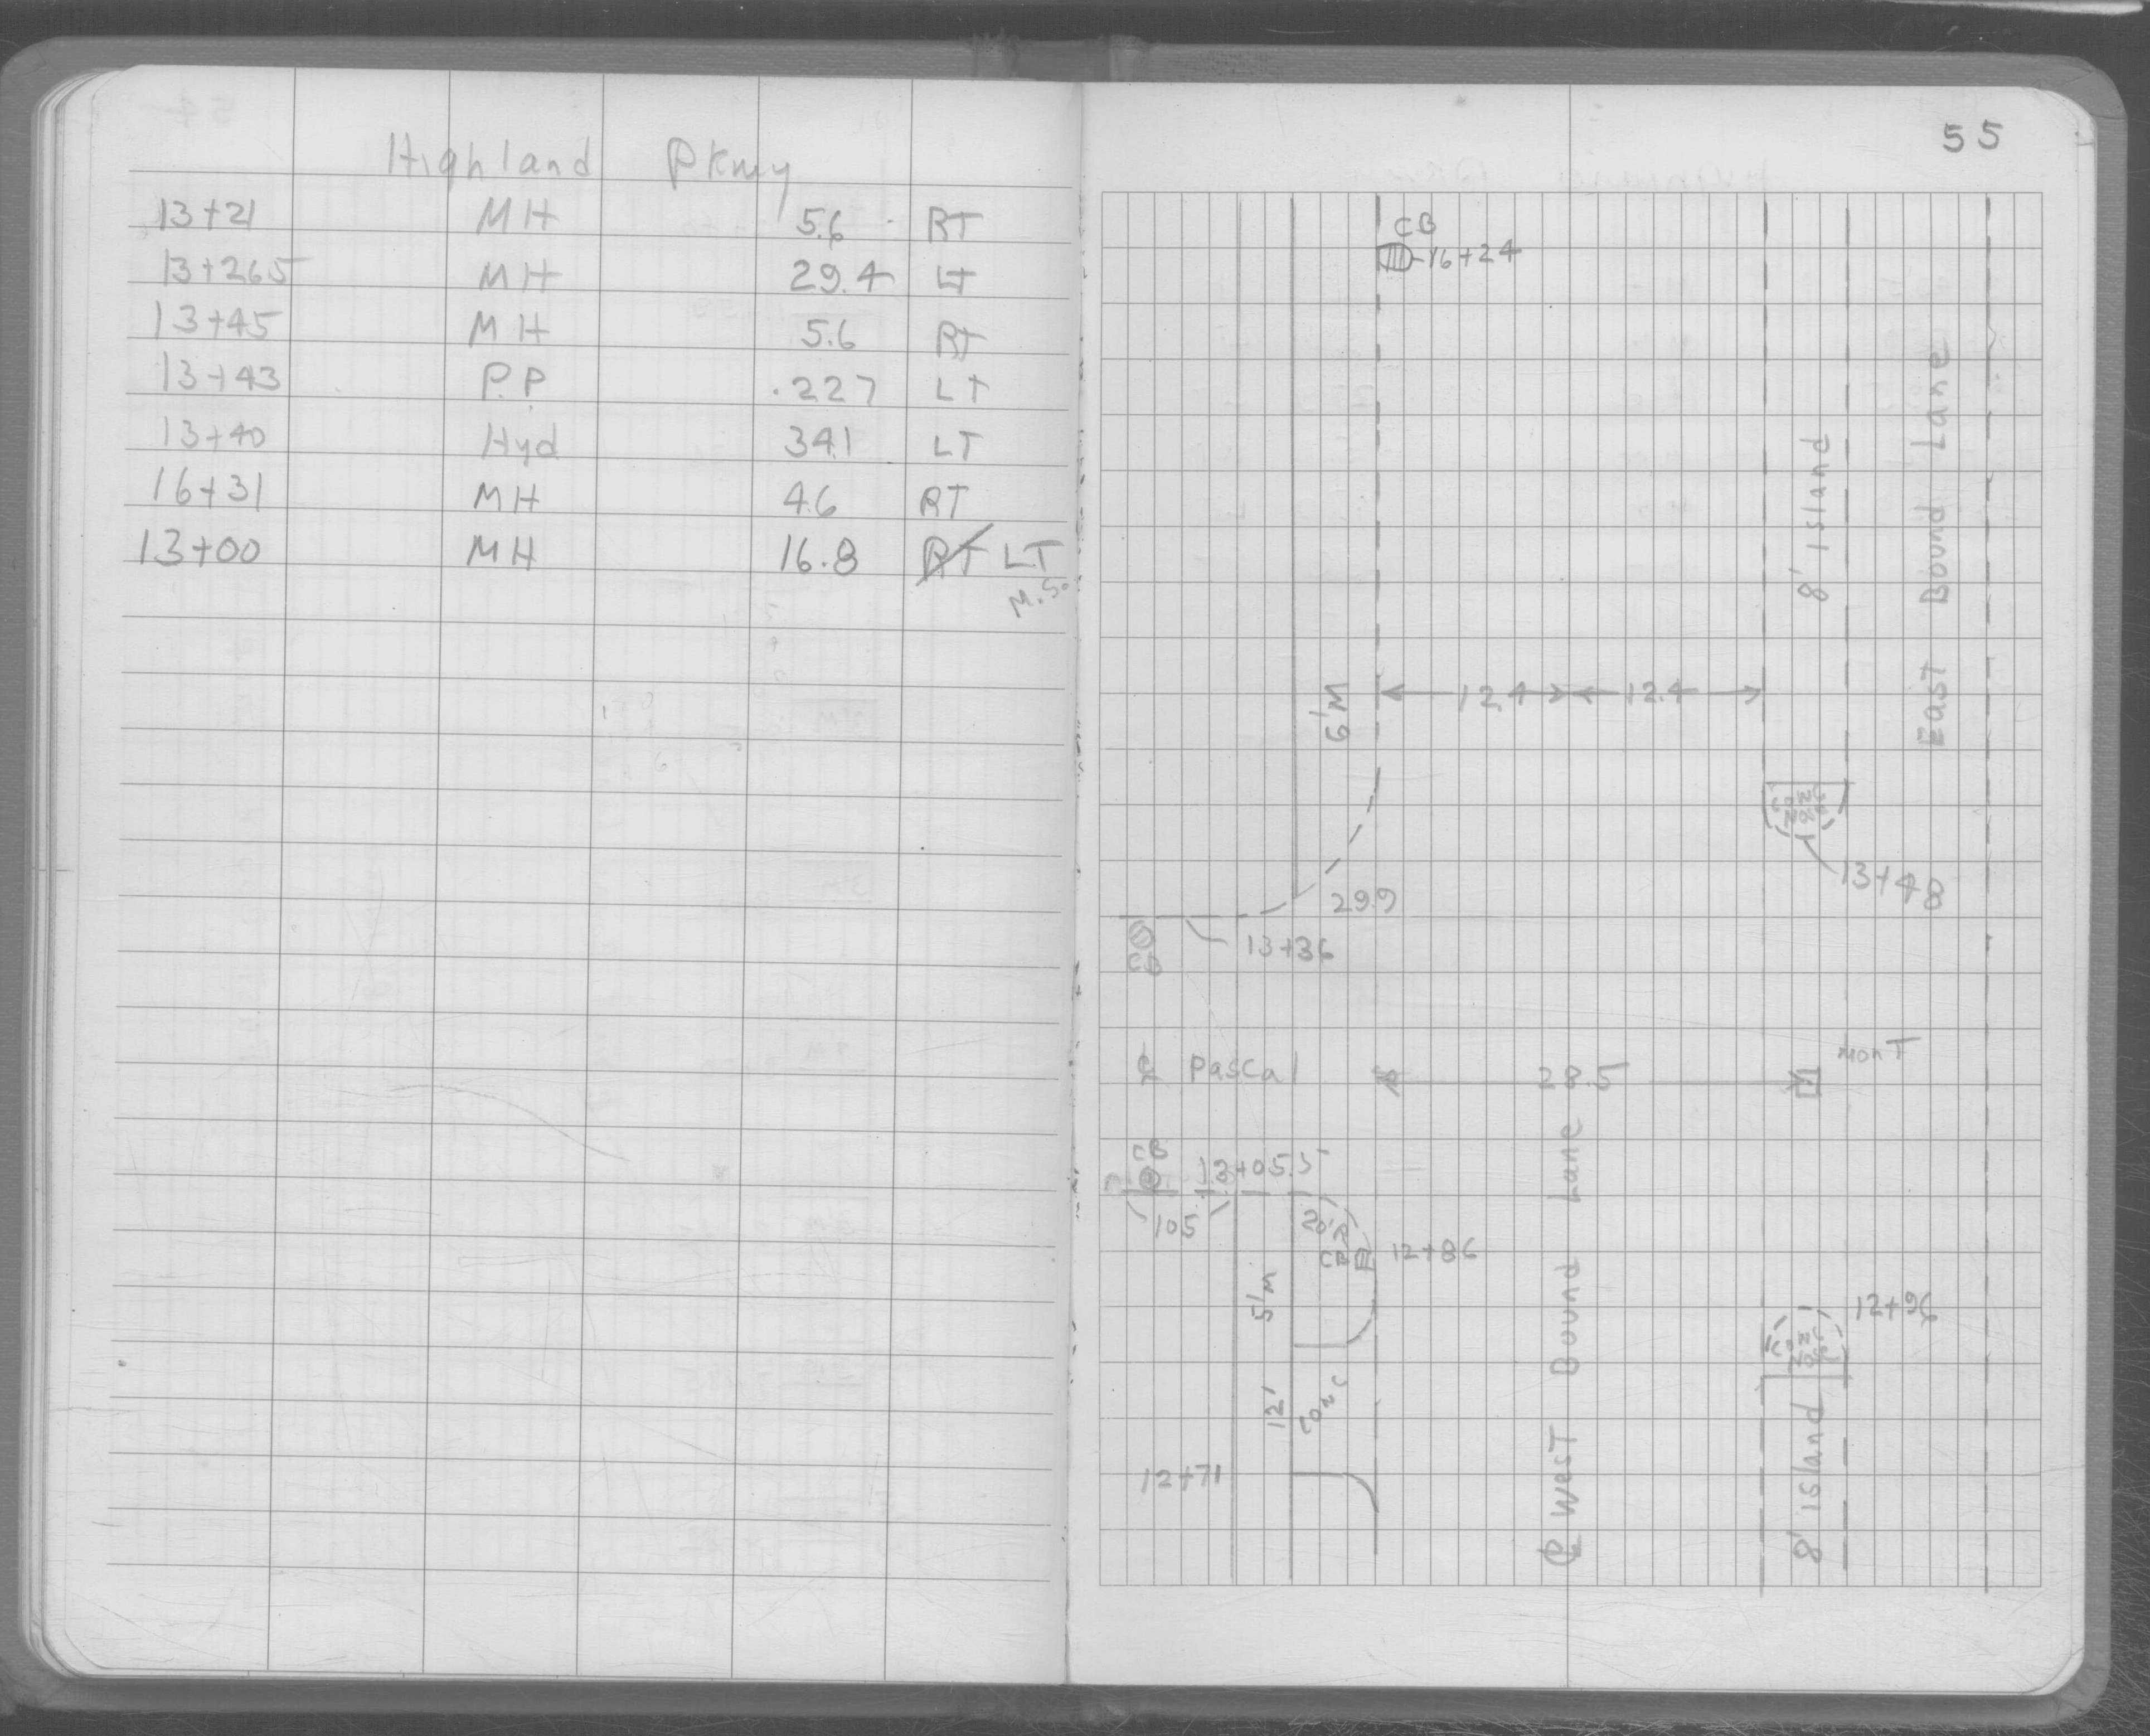 Highland Pkwy
13+21 MH 5.6 RT
13+26.5 MH 29.4 LT
13+45 MH 5.6 RT
13+43 P.P 22.7 LT
13+40 Hyd 34.1 LT
16+31 MH 4.6 RT
13+00 MH 16.8 RT LT
M.S.
55
CB
16+24
8' island
East Bound Lane
6' M
12.4 12.4
13+48
29.9
13+36
CB
℄ Pascal
28.5
MonT
CB
13+05.5
105
20'R
CB
12+86
5' M
12+96
Conc
12'
Conc
12+71
℄ West Bound Lane
8' island